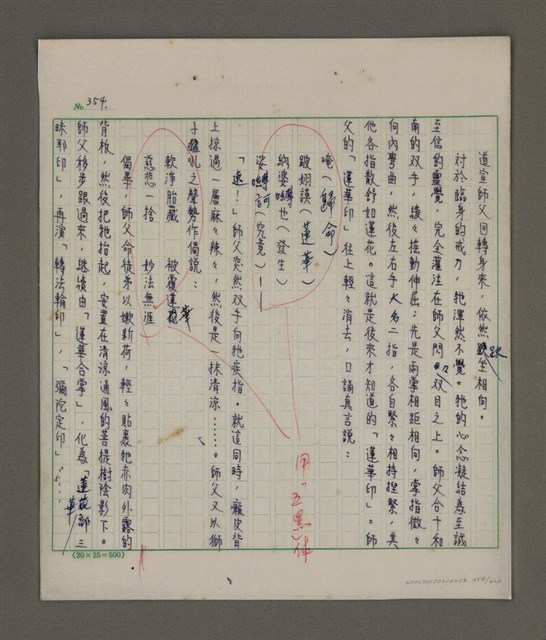 No. 354.
道宣師父回轉身來，依然趺坐相向。
對於臨身的戒刀，牠渾然不覺。牠的心念凝結為至誠
至信的靈覺，完全灌注在師父閃々双目之上。師父合十和
南的双手，緩々推動伸屈；先是兩掌相距相向，掌指微々
向內彎曲，然後左右手大名二指，各自緊々相持捏緊，其
他各指散舒如蓮花。這就是後來才知道的「蓮華印」。師
父的「蓮華印」往上輕々消去，口誦真言說：
唵（歸命）
跋姆謨（蓮華）
納婆嚩也（發生）
娑嚩訶（究竟）——
「逸！」師父突然双手向牠疾指。就這同時，癩皮背
上掠過一層麻々辣々，然後是一抹清涼……。師父又以獅
子雄吼之聲勢作偈說：
軟淨胎藏　被覆蓮華
慈悲一捨　妙法無涯
偈畢，師父命徒弟以嫩新荷，輕々貼裹牠赤肉外露的
背板，然後把牠抬起，安置在清涼通風的菩提樹陰影下。
師父移步跟過來，繼續由「蓮華合掌」，化為「蓮華部三
昧耶印」，再演「轉法輪印」，「彌陀定印」，……
用「五黑」体
(20×25=500)